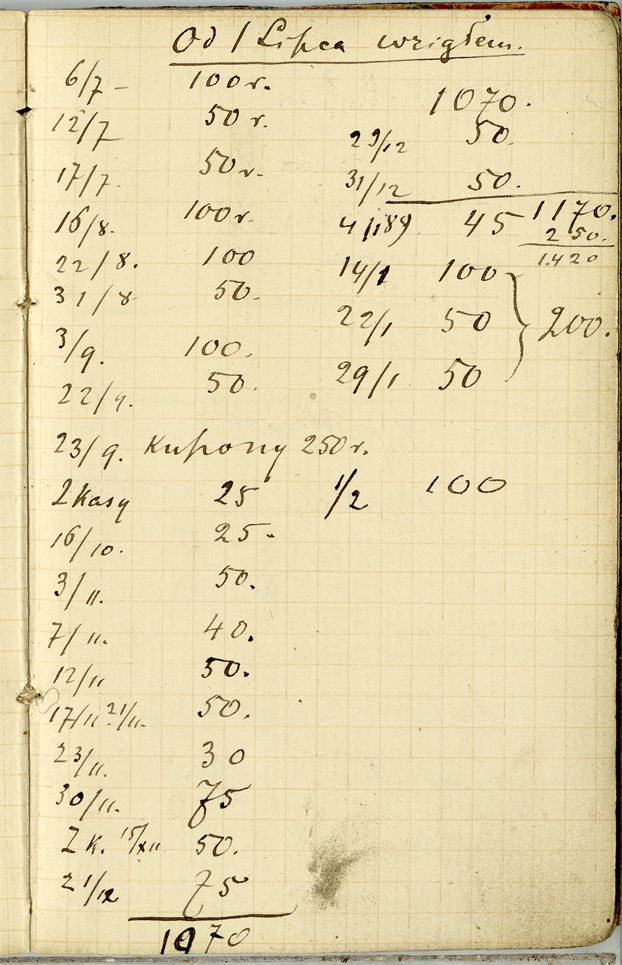 Od 1 Lipca wziąłem.
6/7 – 100 r.
12/7 50 r.
17/7. 50 r.
16/8. 100 r.
22/8. 100
31/8 50.
3/9. 100.
22/9. 50.
23/9. Kupony 250 r.
Z Kasy 25
16/10. 25.
3/11. 50.
7/11. 40.
12/11 50.
17/11 21/11. 50.
23/11. 30
30/11. 75
Z K. 15/XII 50.
21/12 75
1070
1070.
29/12 50.
31/12 50.
1170.
250.
1.420
4/1 89. 45
14/1 100
22/1 50
29/1 50
200.
1/2 100